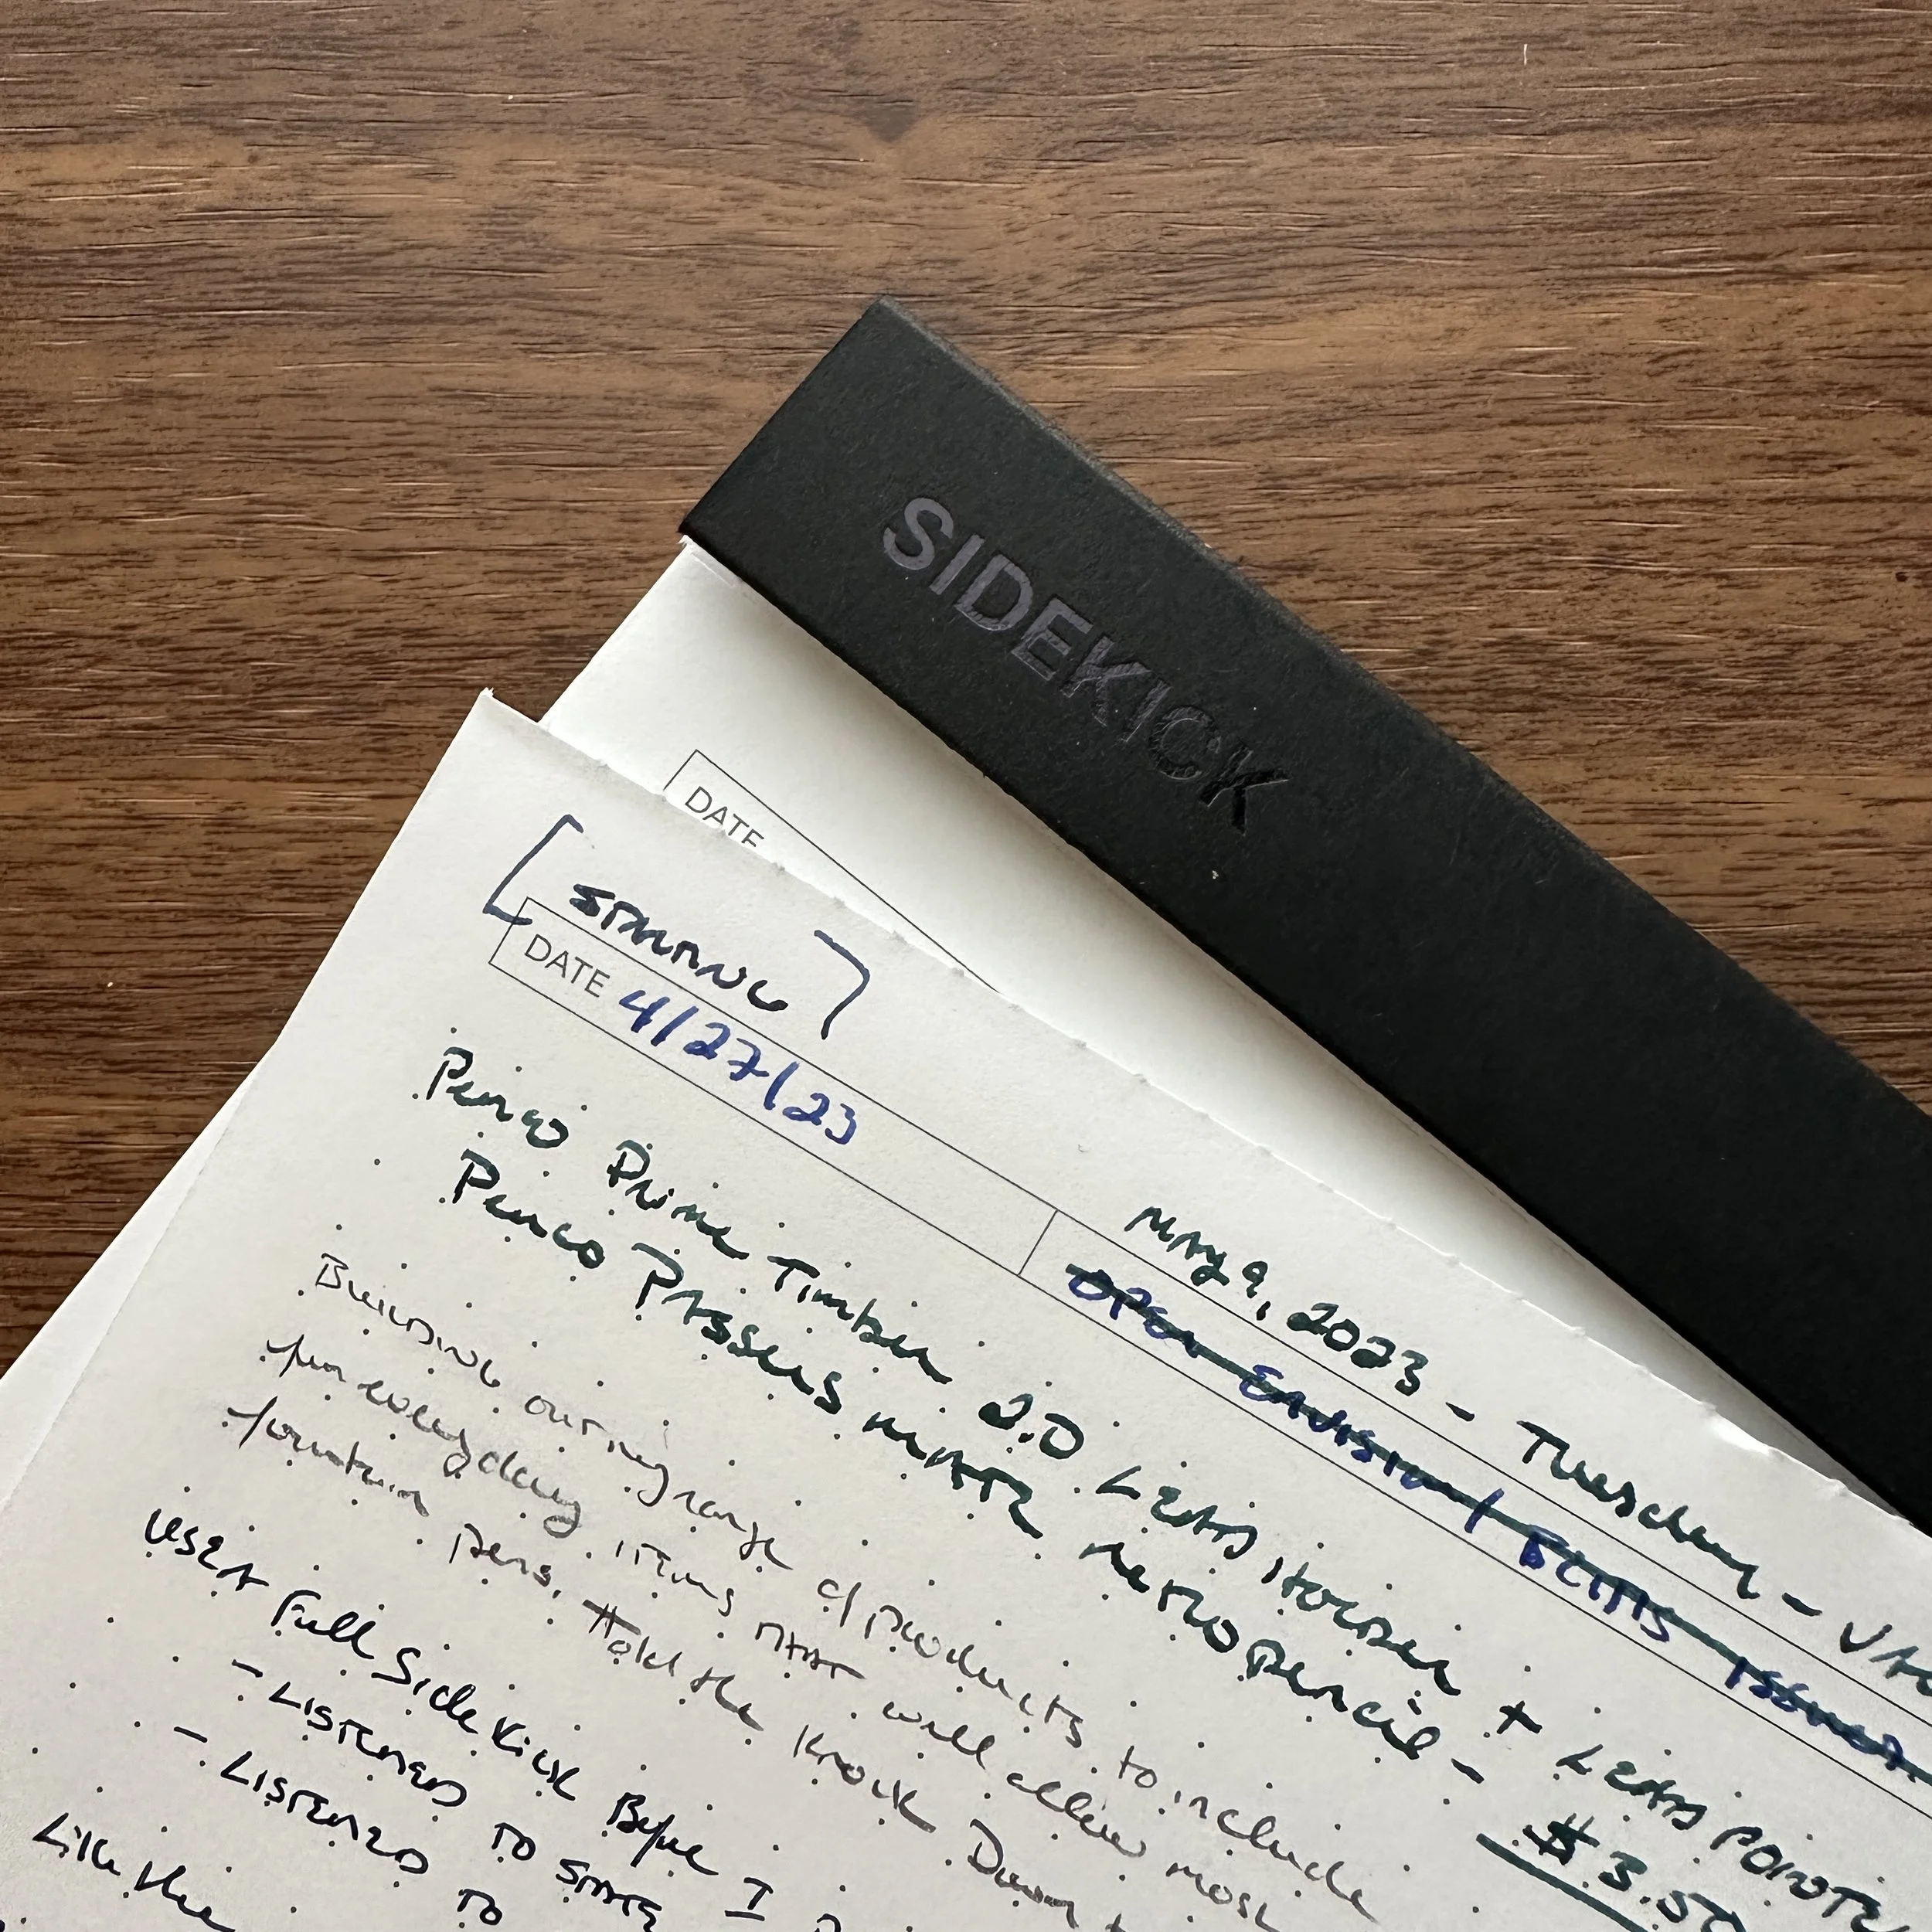 SIDEKICK
DATE
[STARTING]
DATE 4/27/23
MAY 9, 2023 - Tuesday -
OPEN EDITION / BETTIS
Penco Prime Timber 2.0 Lead Holder + Lead Pointer
Penco Passers Mate Retro Pencil - $3.50
Building our range of products to include
for everyday items that will allow most
fountain pens. Hold the Knock Down
USED A Full Sidekick Before I
- LISTENED TO STATE
- LISTENED TO
Like the